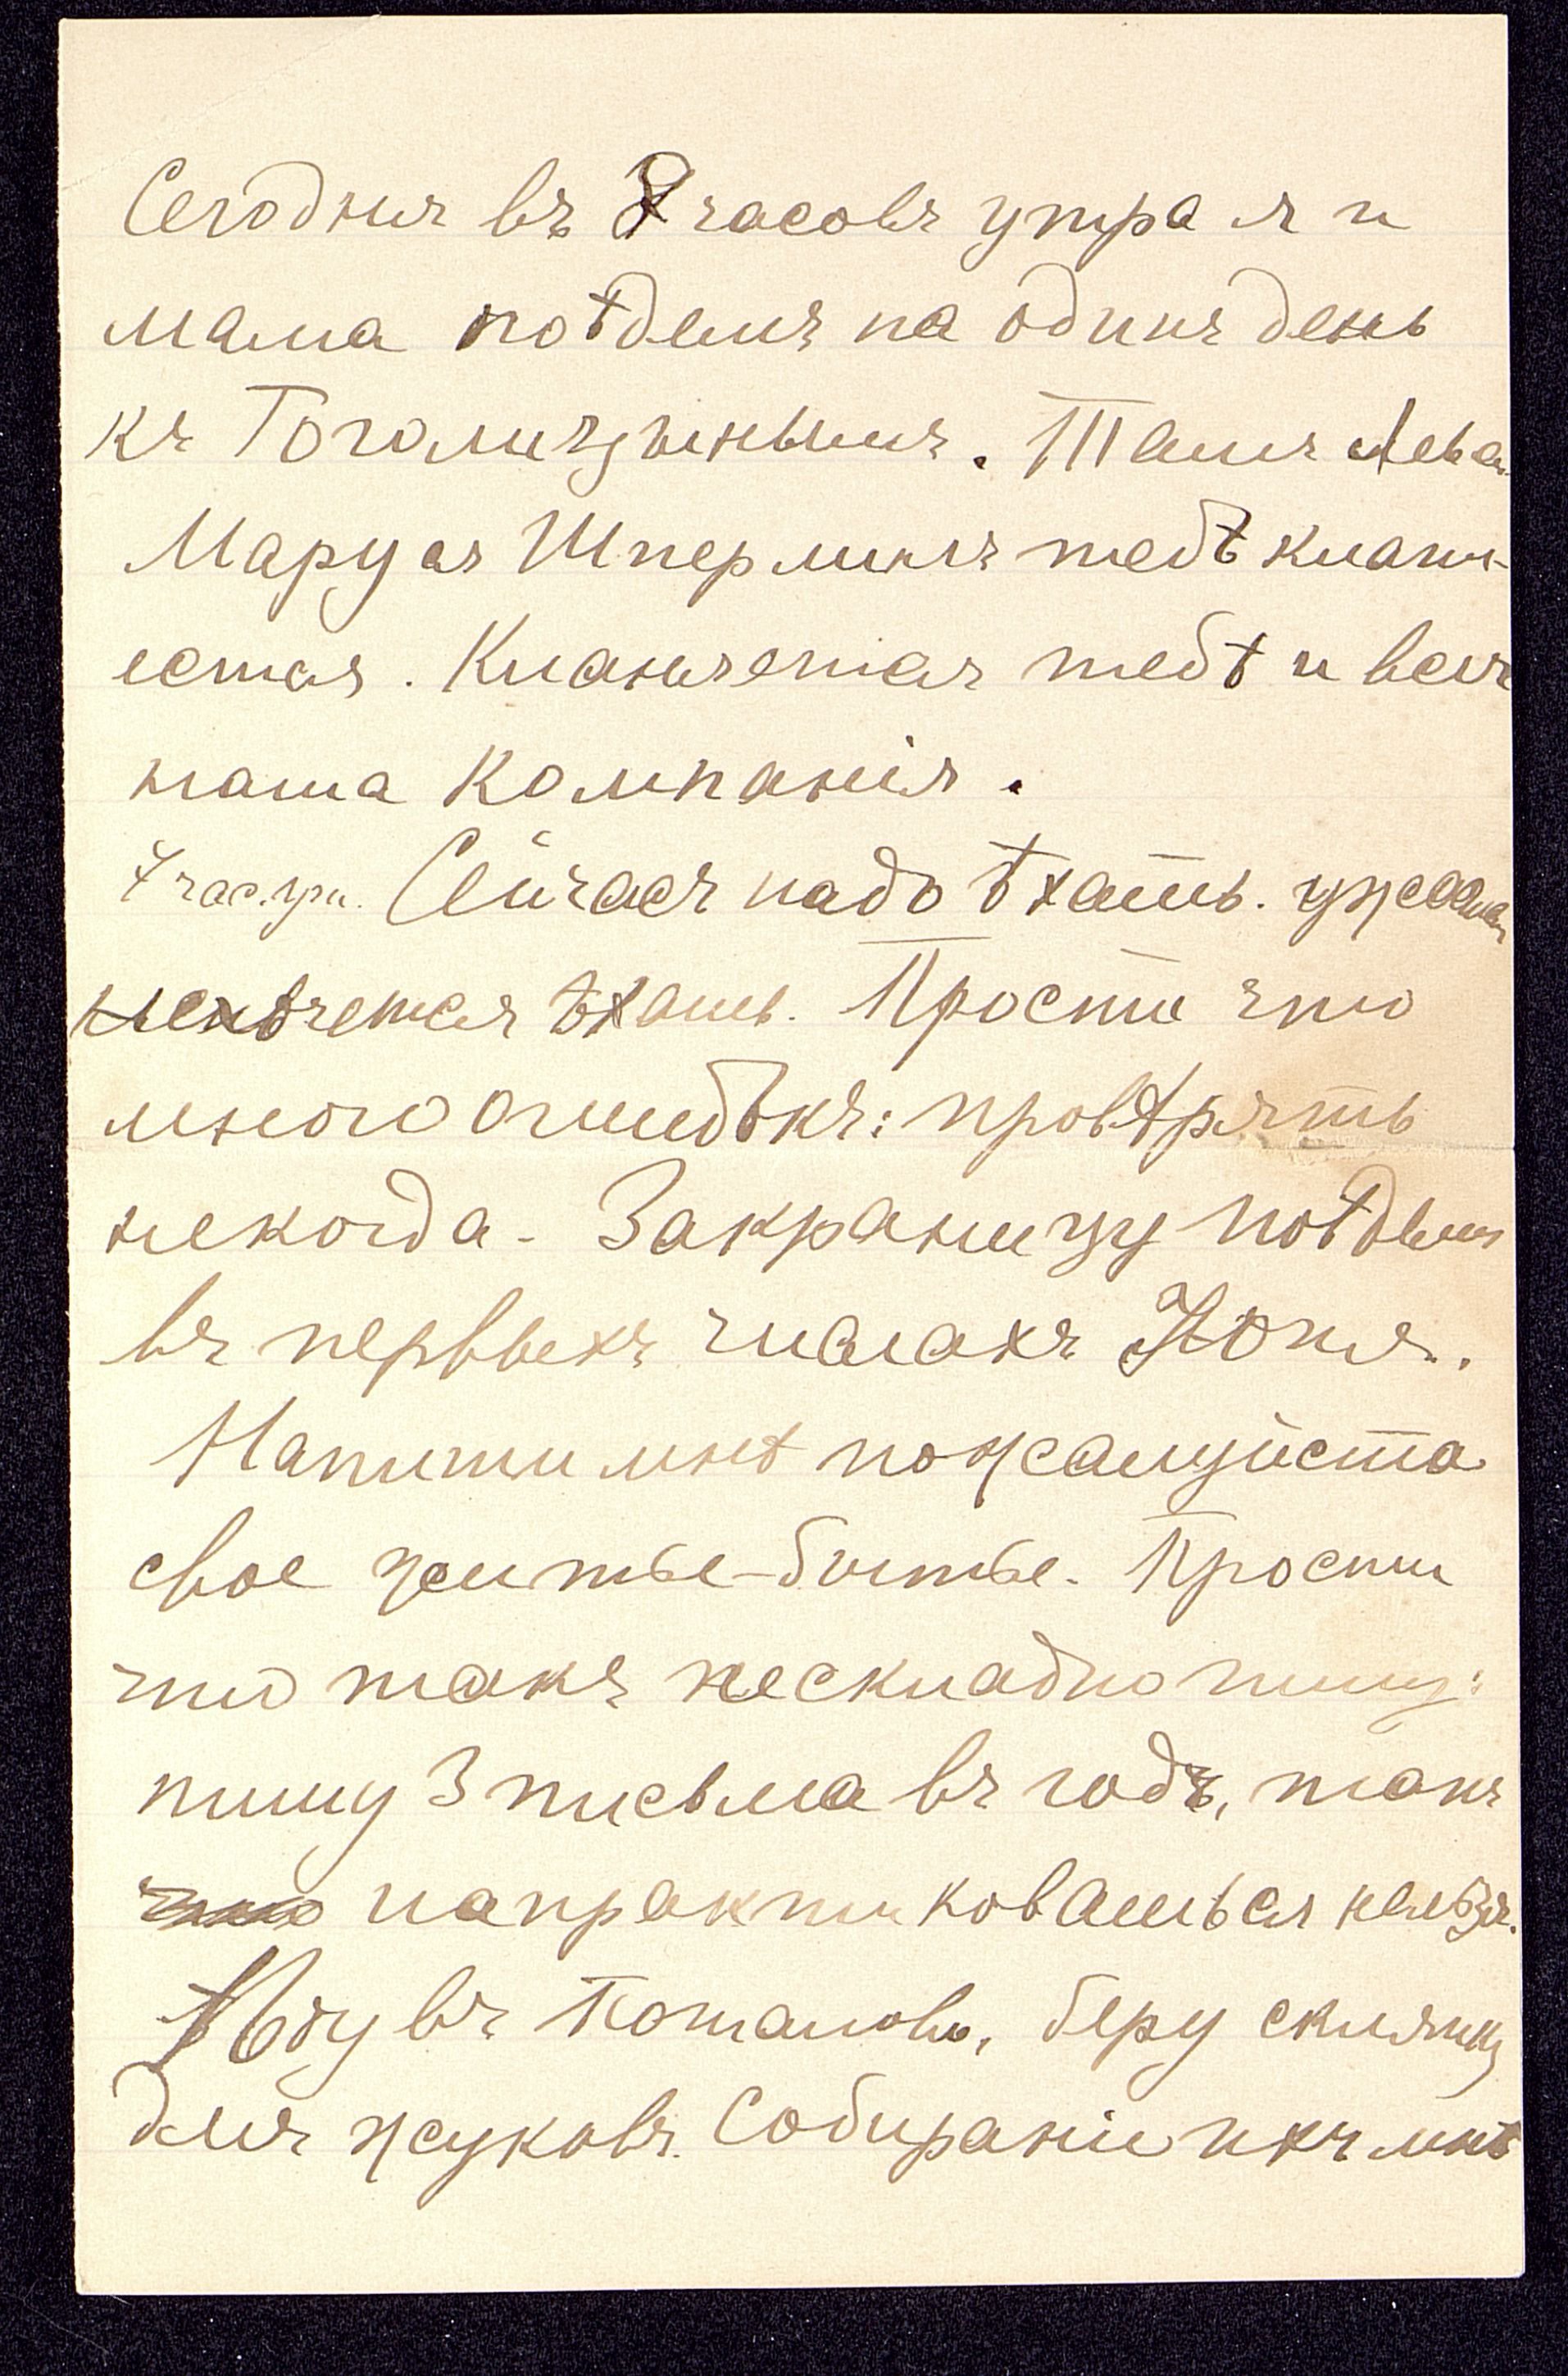 Сегодня въ 8 часовъ утра я и
мама поѣдемъ на одинъ день
къ Тоголицынымъ. Тамъ Лева.
Маруся Шперлингъ тебѣ кланя-
ется. Кланяется тебѣ и вся
наша компанія.
7 час. ут. Сейчасъ надо ѣхать. ужасно
нехочется ѣхать. Прости что
много ошибокъ: провѣрять
некогда. Закраницу поѣдемъ
въ первыхъ числахъ Юня.
Напиши мнѣ пожалуйста
свое житье-бытье. Прости
что такъ нескладно пишу:
пишу 3 письма въ годъ, такъ
что напрактиковаться нельзя.
Иду въ Потапово, беру склянку
для жуковъ. Собираніе ихъ мнѣ